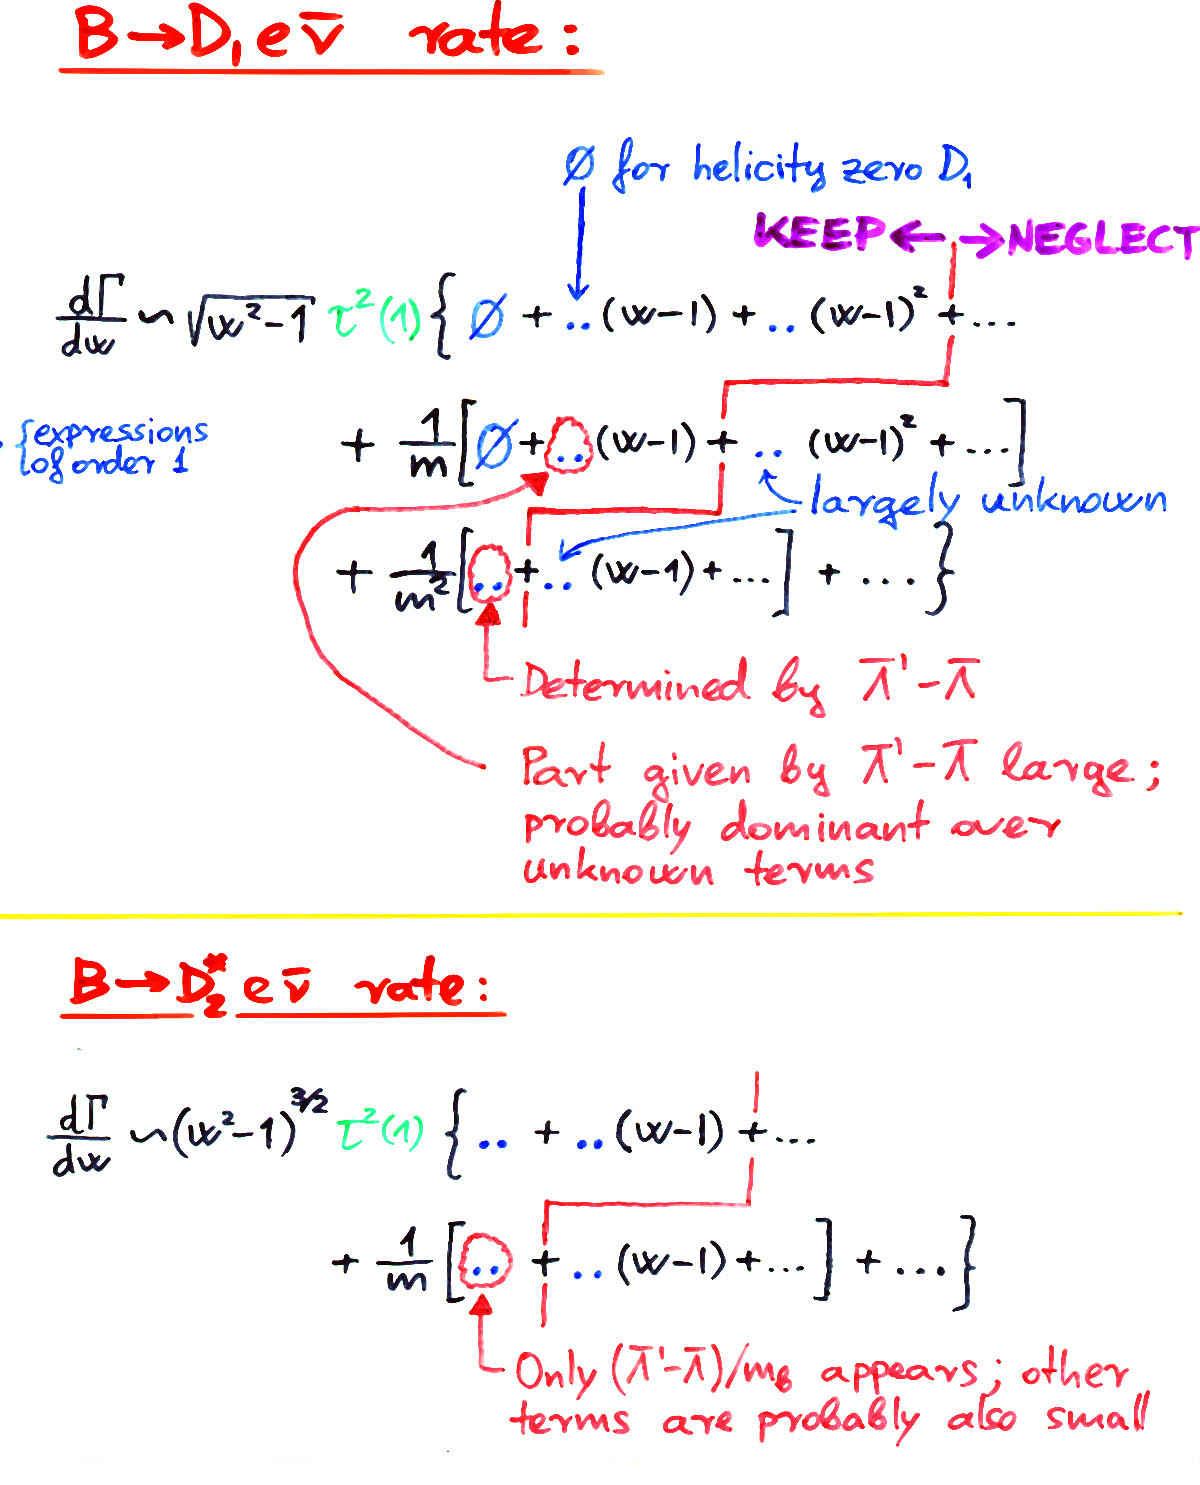 B→D₁eν̄ rate:
∅ for helicity zero D₁
KEEP ← → NEGLECT
dΓ/dw ~ √(w²-1) τ²(1) { ∅ + ..(w-1) + ..(w-1)² + ...
.. {expressions
of order 1
+ 1/m [∅ + ..(w-1) + .. (w-1)² + ...]
largely unknown
+ 1/m² [.. + .. (w-1) + ...] + ... }
Determined by Λ̄'-Λ̄
Part given by Λ̄'-Λ̄ large;
probably dominant over
unknown terms
B→D₂*eν̄ rate:
dΓ/dw ~ (w²-1)^3/2 τ²(1) { .. + ..(w-1) + ...
+ 1/m [.. + ..(w-1) + ...] + ... }
Only (Λ̄'-Λ̄)/m_b appears; other
terms are probably also small